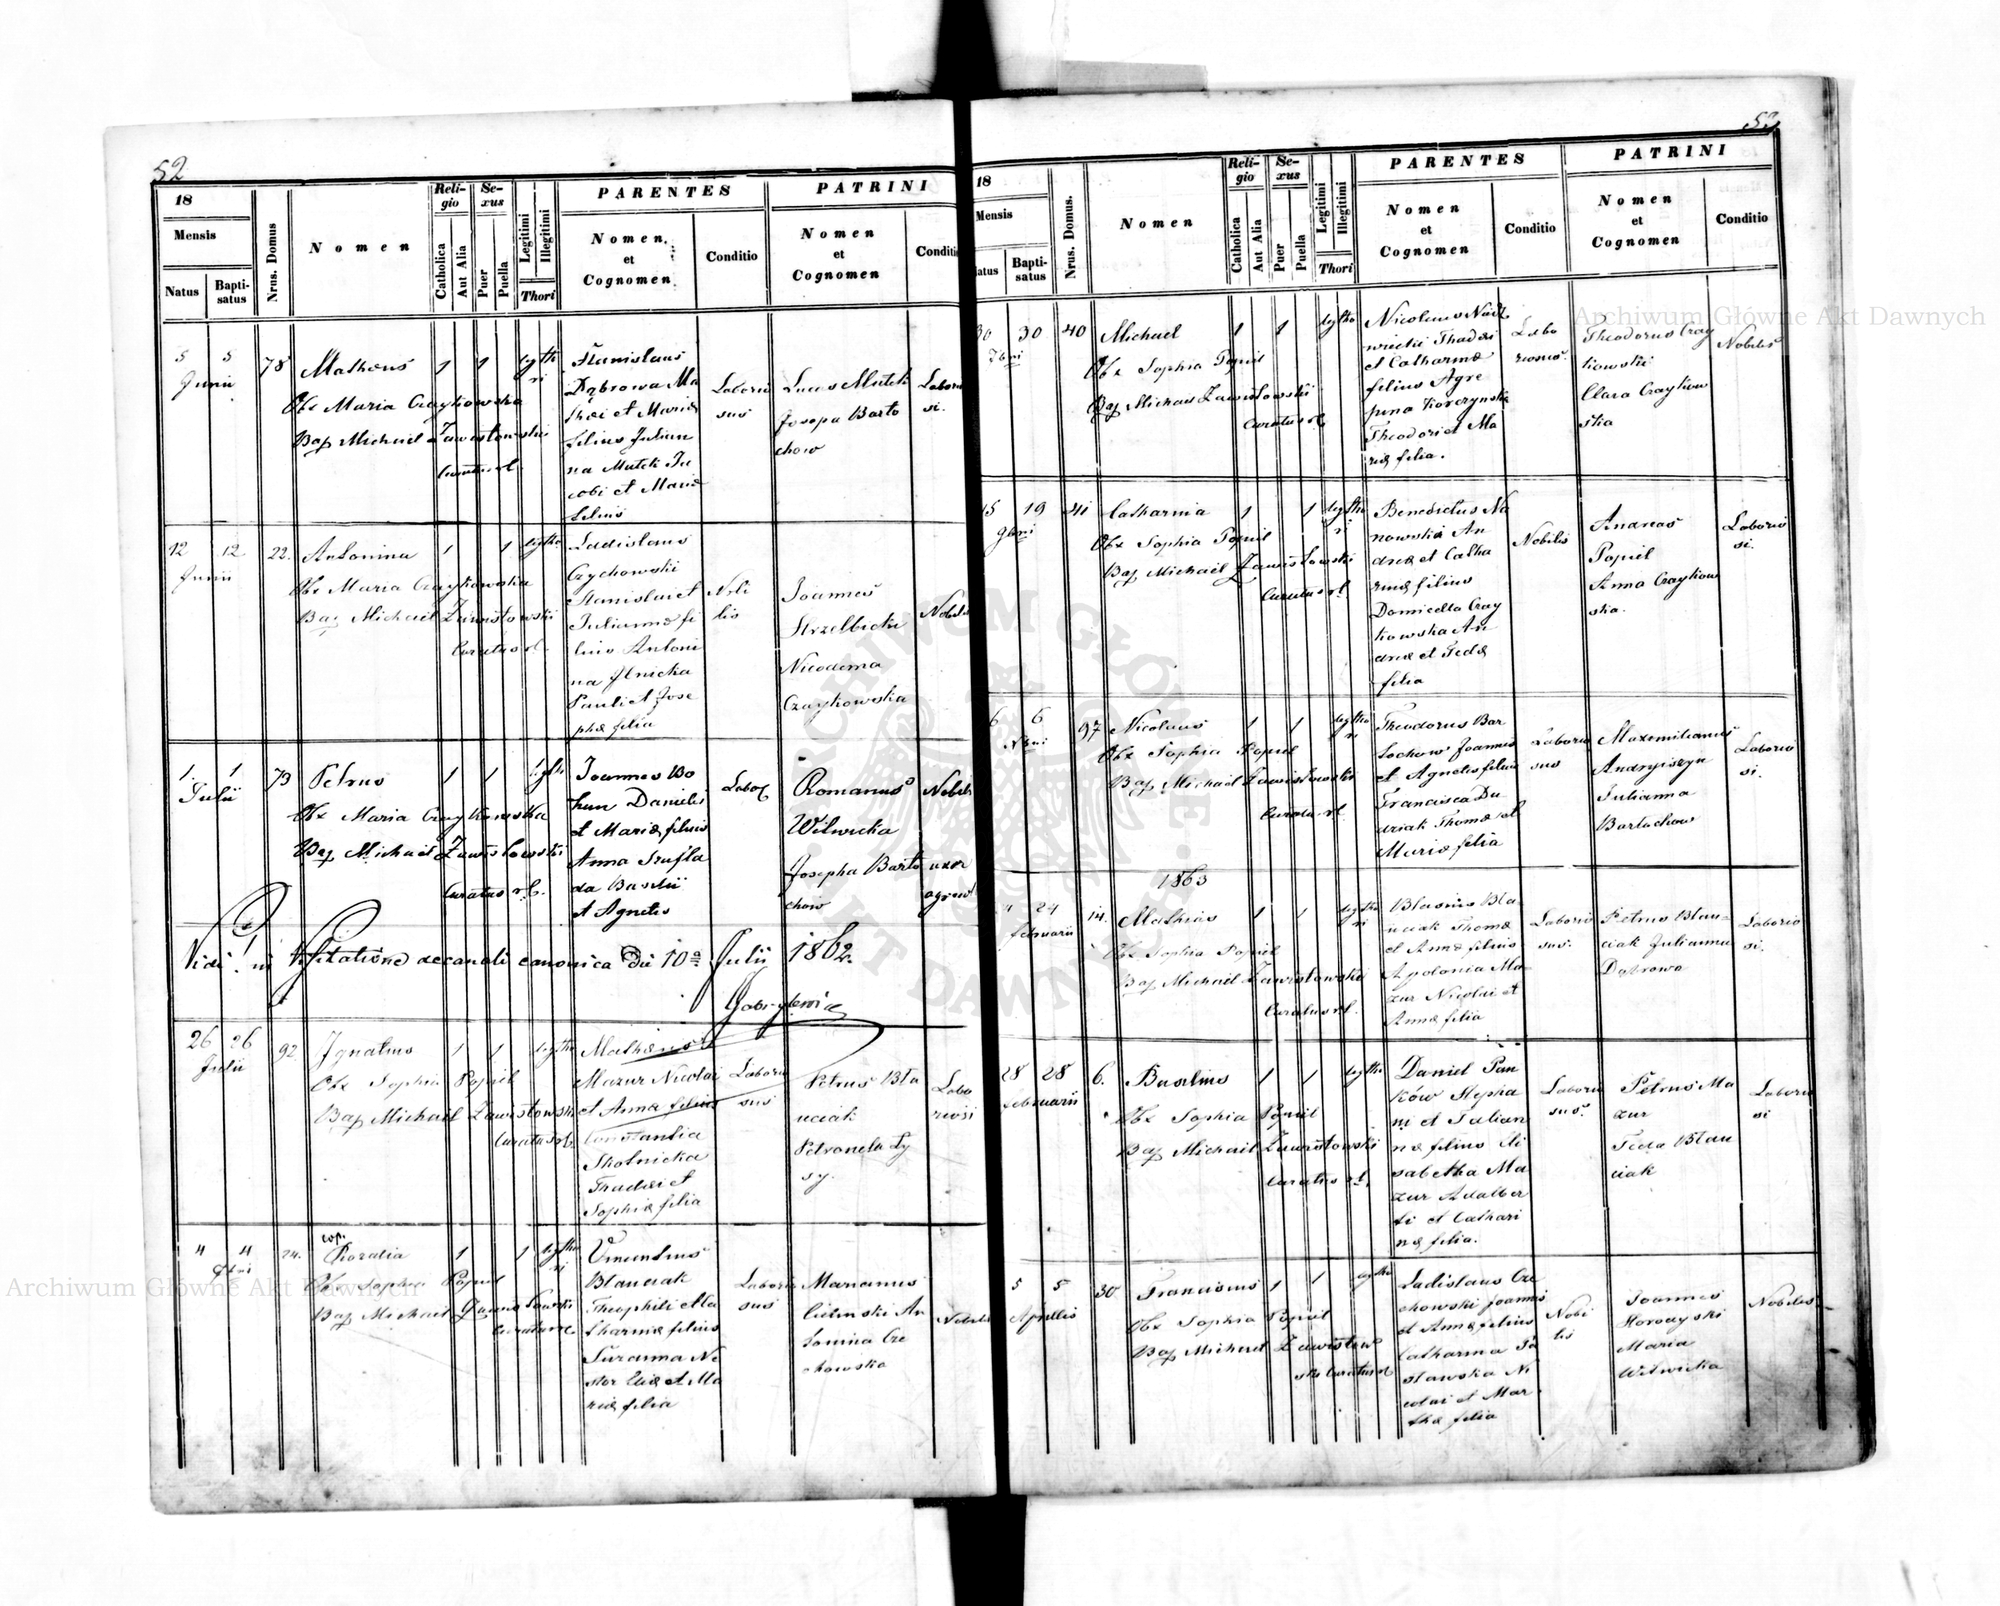 52
18
Mensis
Natus
Bapti-
satus
Nrus. Domus
Nomen
Reli-
gio
Catholica
Aut Alia
Se-
xus
Puer
Puella
Legitimi
Illegitimi
Thori
PARENTES
Nomen
et
Cognomen
Conditio
PATRINI
Nomen
et
Cognomen
Conditio
5 5 78
Junii
Matheus 1 1
Obx Maria Czaykowska
Bap Michael Zawistowski
Curatus r.l.
Stanislaus
Dąbrowa Ma
thei et Mariæ
filius Julian
na Mutek Ja
cobi et Mariæ
filius
Laborio
sus
Lucas Mutek
Josepa Barto
chow
Laborio
si.
12 12 22.
Junii
Antonina 1 1
Obx Maria Czaykowska
Bap Michael Zawistowski
Curatus r.l.
Ladislaus
Czychowski
Stanislai et
Juliannæ fi
lius Antoni
na Ilnicka
Pauli et Jose
phæ filia
Nobi
lis
Joannes
Strzelbicki
Nicodema
Czaykowska
Nobiles
1 1 73
Julii
Petrus 1 1
Obx Maria Czaykowska
Bap Michael Zawistowski
Curatus r.l.
Joannes Bo
hun Danielis
et Mariæ filius
Anna Szufla
da Basilii
et Agnetis
Labor
Romanus
Witwicka
Josepha Barto
chow
Nobilis
uxor
agrico
Vidi in Visitatione decanali canonica die 10a Julii 1862.
26 26 92
Julii
Ignatius 1 1
Obx Sophia Popiel
Bap Michael Zawistowski
Curatus r.l.
Matheus
Mazur Nicolai
et Anna filius
Constantia
Skolnicka
Thadæi et
Sophiæ filia
Laborio
sus
Petrus Bła
uciak
Petronela Ły
sy.
Labo
riosi
4 4 24.
cop.
Rozalia 1 1
Obx Sophia Popiel
Bap Michael Zawistowski
Curatus
Vincentius
Blauciak
Theophili et Ca
tharinæ filius
Suzanna Ne
stor Eliæ et Ma
riæ filia
Laborio
sus
Marianus
Antonina Cze
chowska
Nobiles
53
18
Mensis
Natus
Bapti-
satus
Nrus. Domus.
Nomen
Reli-
gio
Catholica
Aut Alia
Se-
xus
Puer
Puella
Legitimi
Illegitimi
Thori
PARENTES
Nomen
et
Cognomen
Conditio
PATRINI
Nomen
et
Cognomen
Conditio
30 30 40
7bri
Michael 1 1
Obx Sophia Popiel
Bap Michael Zawistowski
Curatus r.l.
Nicolaus
Thadæi
et Catharinæ
filius Agre
pina Korczynska
Theodori et Ma
riæ filia.
Labo
riosus
Theodorus Czay
kowski
Clara Czaykow
ska
Nobiles
15 19 41
9bris
Catharina 1 1
Obx Sophia Popiel
Bap Michael Zawistowski
Curatus r.l.
Benedictus Ma
nowski An
dreæ et Catha
rinæ filius
Domicella Czay
kowska An
dreæ et Teclæ
filia
Nobilis
Andreas
Popiel
Anna Czaykow
ska.
Laborio
si.
6 6 97
Nicolaus 1 1
Obx Sophia Popiel
Bap Michael Zawistowski
Curatus r.l.
Theodorus Bar
tochow Joannis
et Agnetis filius
Francisca Du
dziak Thomæ et
Mariæ filia
Laborio
sus
Maxemilianus
Andryiszyn
Julianna
Bartochow
Laborio
si.
1863
24 14.
februarii
Mathias 1 1
Obx Sophia Popiel
Bap Michael Zawistowski
Curatus r.l.
Blasius Bla-
uciak Thomæ
et Annæ filius
Apolonia Ma-
zur Nicolai et
Annæ filia
Laborio
sus.
Petrus Blau-
ciak Julianna
Dąbrowa
Laborio
si.
28 28 6.
februarii
Basilius 1 1
Obx Sophia Popiel
Bap Michael Zawistowski
Curatus r.l.
Daniel Pań
ków Stepha
ni et Julian
næ filius Eli
sabetha Ma
zur Adalber
ti et Cathari
næ filia.
Laborio
sus.
Petrus Ma
zur
Tecla Blau
ciak
Laborio
si
5 5 30
Aprilis
Franciscus 1 1
Obx Sophia Popiel
Bap Michael Zawistow
ski Curatus r.l.
Ladislaus Cze
chowski Joannis
et Annæ filius
Catharina Ja
sławska Ni
colai et Mar
thæ filia
Nobi
lis
Joannes
Horodyski
Maria
Witwicka
Nobiles
Archiwum Główne Akt Dawnych
Archiwum Główne Akt Dawnych
ARCHIWUM GŁÓWNE AKT DAWNYCH